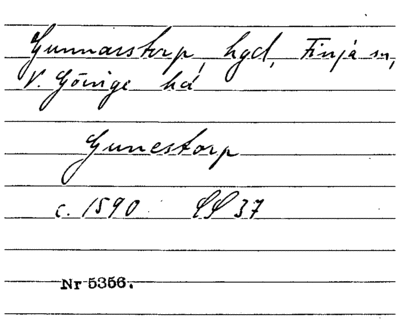 Gunnarstorp, hgd, Finja sn,
V. Göinge hd
Gunestorp
c. 1590 SS 37
Nr 5356.